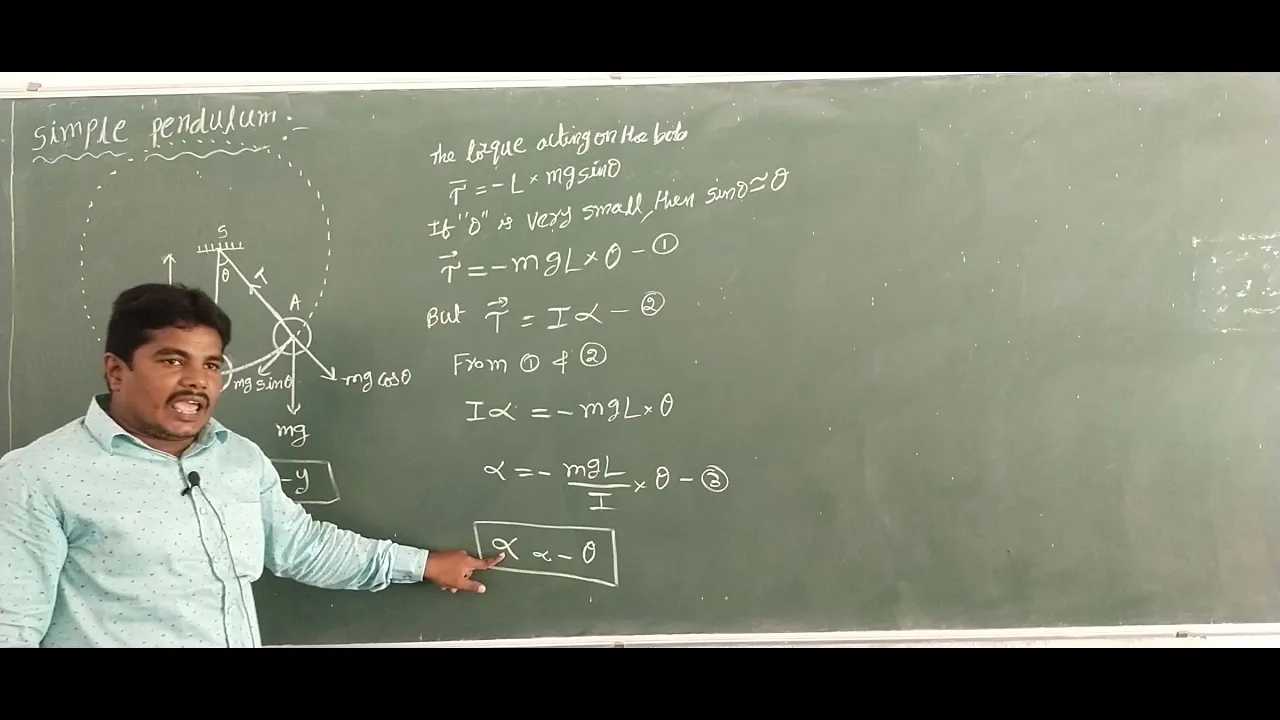 simple pendulum:-
S
θ
T
A
mg sinθ
mg cosθ
mg
-y
The torque acting on the bob
τ̅ = - L × mg sinθ
If "θ" is very small, then sinθ ≃ θ
τ⃗ = - mgL × θ - ①
But τ⃗ = I α - ②
From ① & ②
I α = - mgL × θ
α = - mgL/I × θ - ③
α ∝ - θ